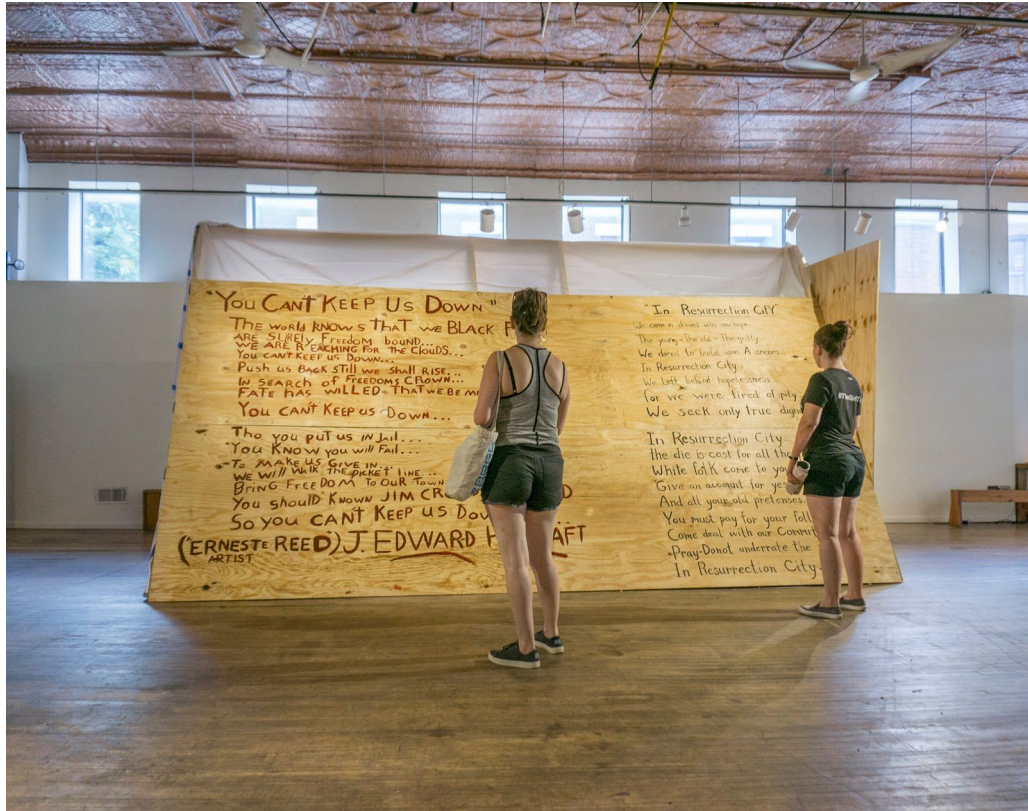 "You CAN'T KEEP US DOWN"
The world KNOWS THAT WE BLACK
ARE SURELY FREEDOM bound...
WE ARE REACHING FOR THE CLOUDS...
YOU CAN'T KEEP US DOWN...
Push us BACK STILL WE SHALL RISE...
IN SEARCH OF FREEDOMS CROWN...
FATE HAS WILLED THAT WE BE
You CAN'T KEEP us DOWN...
Tho you put us IN JAIL...
You Know you will FAIL...
To MAKE US GIVE IN...
WE WILL WALK THE PICKET LINE...
BRING FREEDOM TO OUR TOWN
You should KNOWN JIM
So you CAN'T KEEP US
('ERNESTE REED') J. EDWARD
ARTIST
"In Resurrection CITY"
We came in droves with new hope
The young-The old-The gritty
We dared to build upon A dream
In Resurrection City
We Left behind hopelessness
for we were tired of pity
We seek only true
In Resurrection City...
the die is cast for all
White folk come to
Give an account for
And all your old pretenses...
You must pay for your
Come deal with our
Pray-Donot underrate the
In Resurrection City